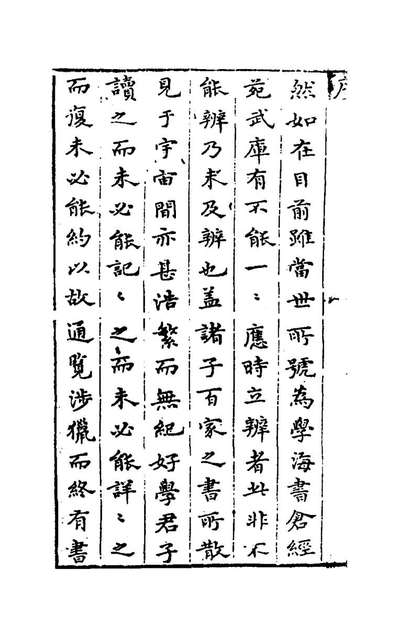 然如在目前雖當世所號為學海書倉經
苑武庫有不能一〻應時立辨者此非不
能辨乃未及辨也盖諸子百家之書所散
見于宇宙間亦甚浩繁而無紀好學君子
讀之而未必能記〻之而未必能詳〻之
而復未必能約以故通覽涉獵而終有書